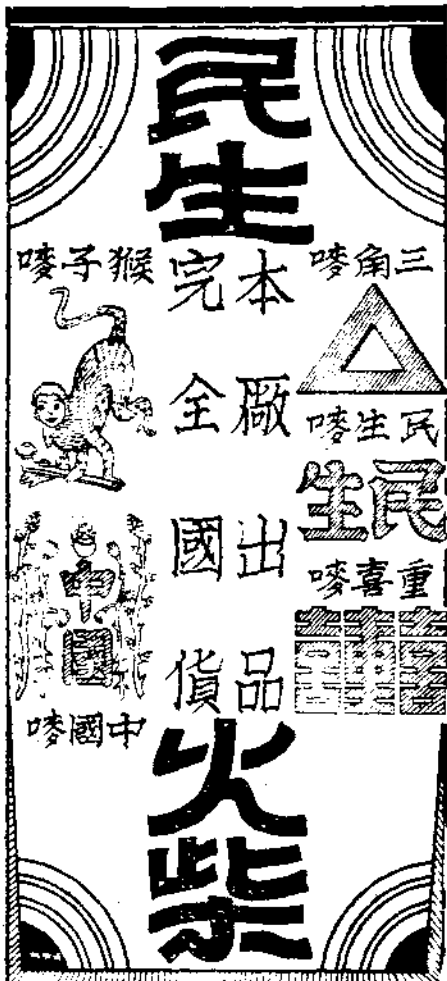 民生
三角嘜
民生嘜
民生
重喜嘜
本廠出品
完全國貨
猴子嘜
中國
中國嘜
火柴